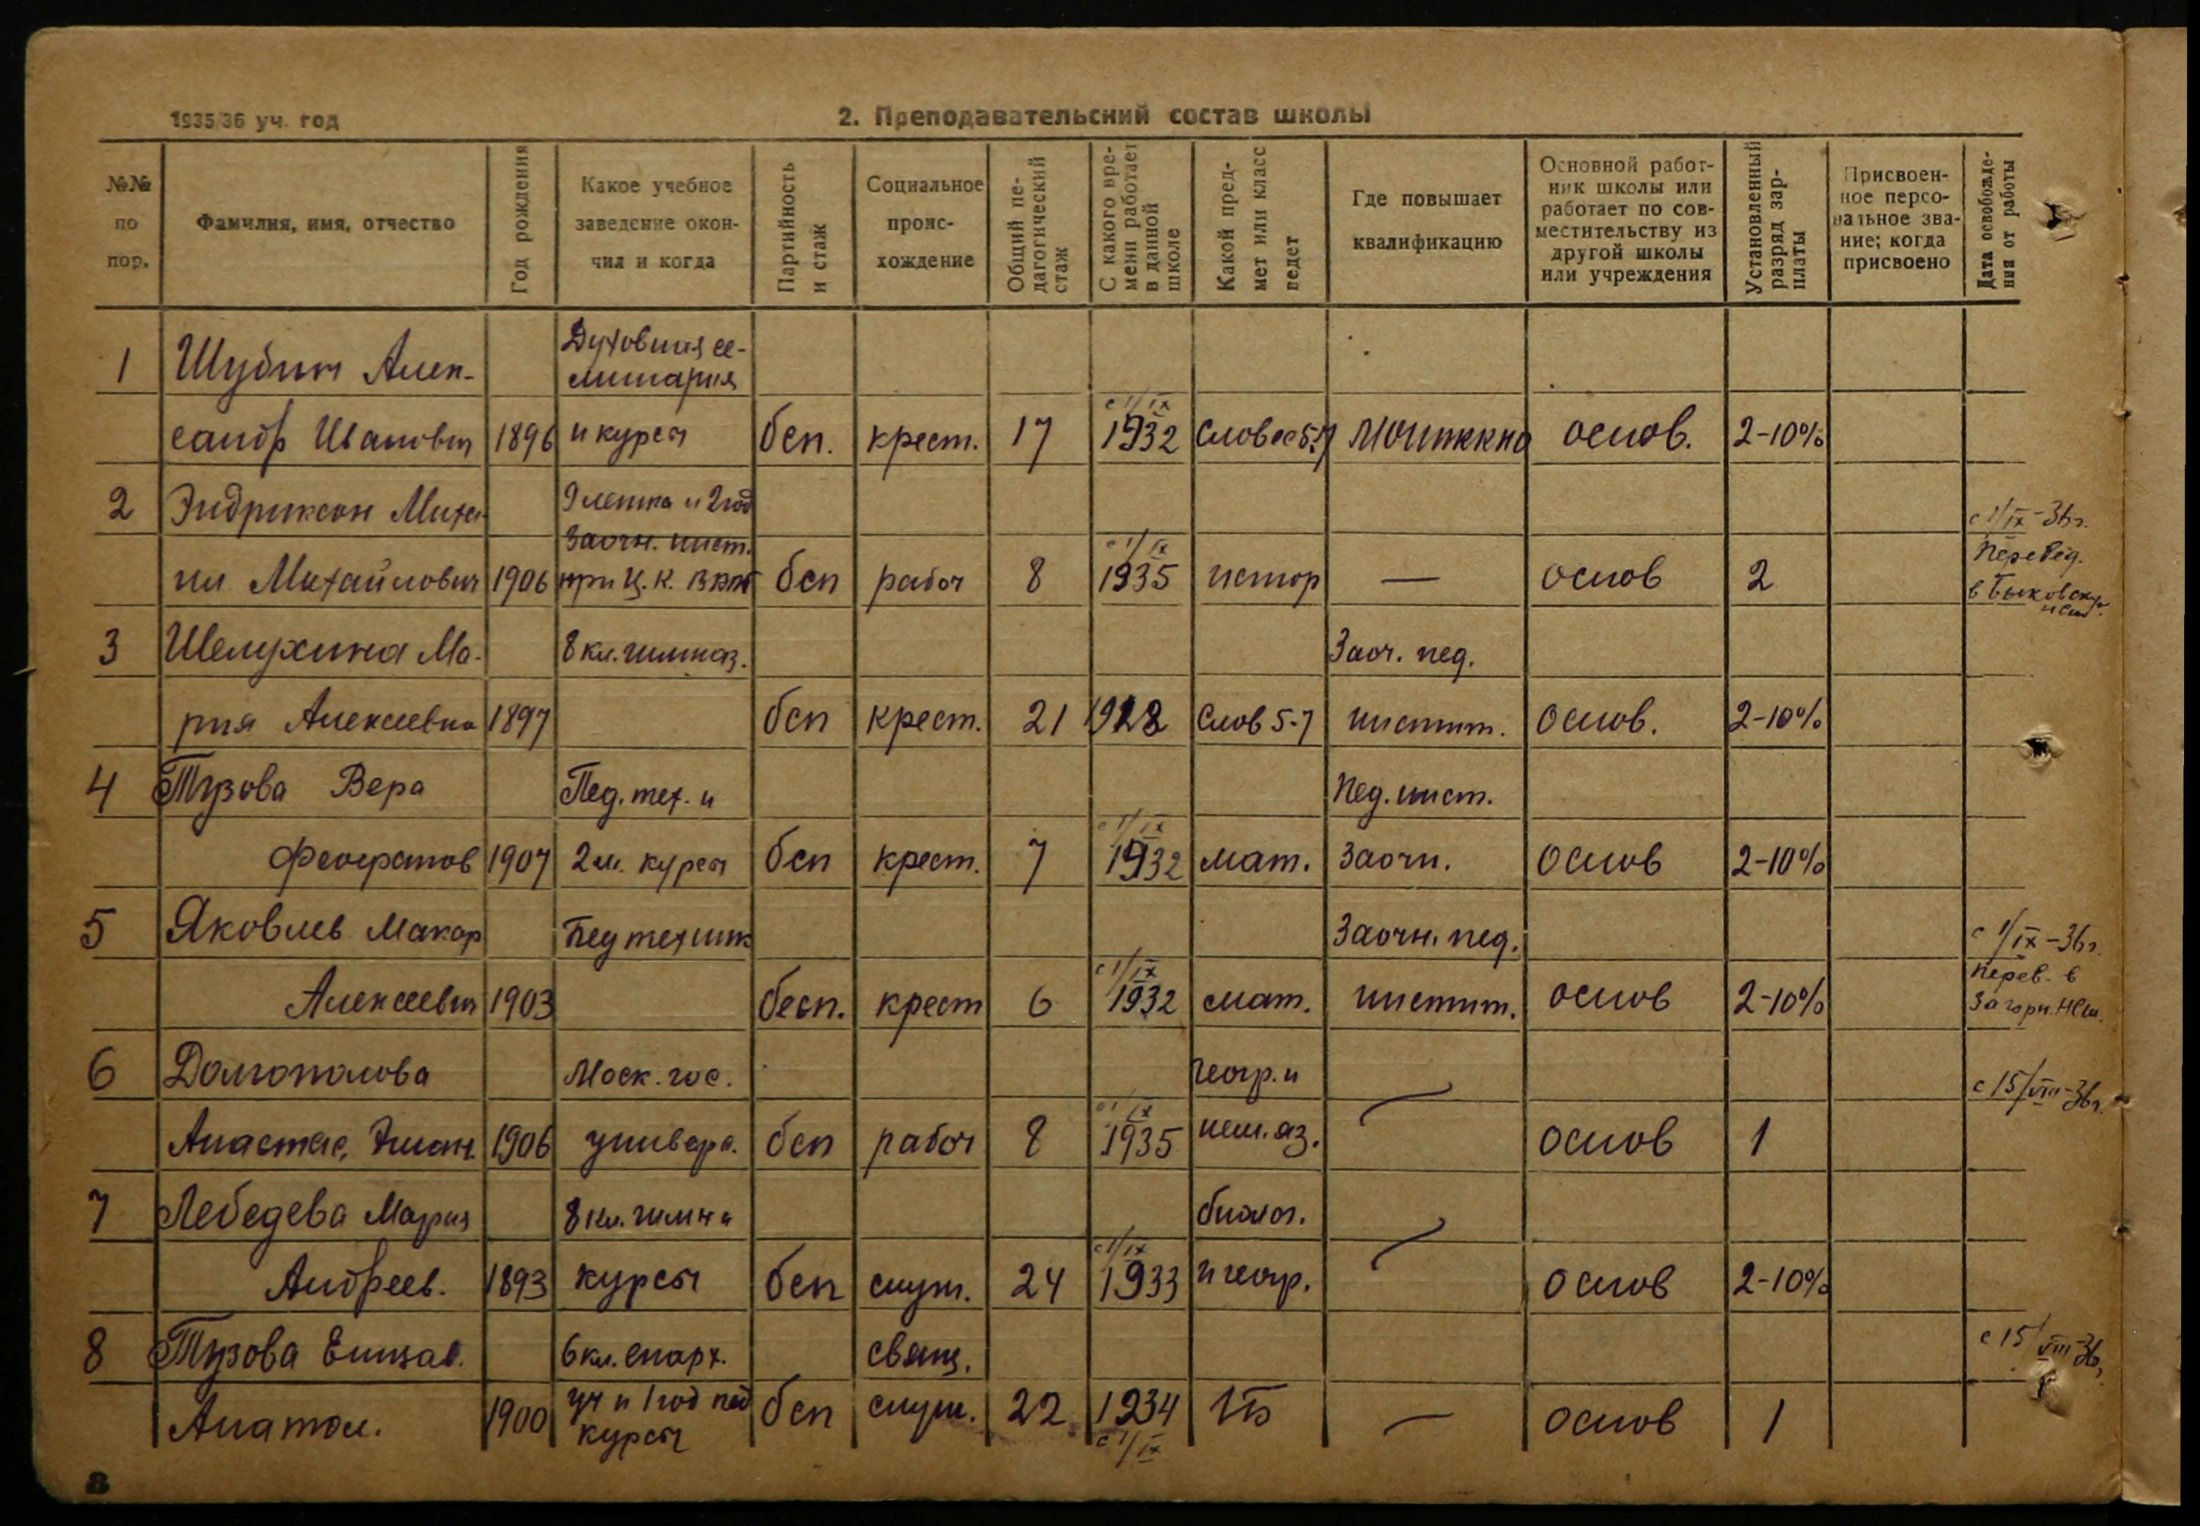 1935/36 уч. год
2. Преподавательский состав школы
№№ по пор.
Фамилия, имя, отчество
Год рождения
Какое учебное заведение окончил и когда
Партийность и стаж
Социальное происхождение
Общий педагогический стаж
С какого времени работает в данной школе
Какой предмет или класс ведет
Где повышает квалификацию
Основной работник школы или работает по совместительству из другой школы или учреждения
Установленный разряд зарплаты
Присвоенное персональное звание; когда присвоено
Дата освобождения от работы
Духовная се-
1 Шубин Алек- минария
с 1/IX
сандр Иванович 1896 и курсы бсп. крест. 17 1932 Словес 5-7 основ. 2-10%
2 Эндриксон Миха- 9 летка и 2 год с 1/IX-36г.
Заочн. инст. с 1/IX Перевед.
ил Михайлович 1906 при Ц.К. ВКПб бсп рабоч 8 1935 истор — основ 2 в Быковскую нсш
3 Шелухина Ма- 8 кл. гимназ. Заоч. пед.
рия Алексеевна 1897 бсп крест. 21 1928 Слов 5-7 институт. основ. 2-10%
4 Тузова Вера Пед. тех. и Пед. инст.
с 1/IX
Феофратов 1907 2 м. курсы бсп крест. 7 1932 мат. Заочн. основ 2-10%
5 Яковлев Макар Пед техник Заочн. пед. с 1/IX-36г.
с 1/IX перев. в
Алексеевич 1903 бесп. крест 6 1932 мат. институт. основ 2-10% Загорн. НСш.
6 Долгополова Моск. гос. геогр. и с 15/VIII-36г.
с 1/IX
Анастас. 1906 универс. бсп рабоч 8 1935 нем. яз. — основ 1
7 Лебедева Мария 8 кл. гимн и биолог.
с 1/IX
Андреев. 1893 курсы бсп служ. 24 1933 и геогр. — основ 2-10%
8 Тузова Елизав. 6 кл. епарх. свящ. с 15/VIII-36г.
Анатол. 1900 уч и 1 год пед курсы бсп служ. 22 1934 1 — основ 1
с 1/IX
8